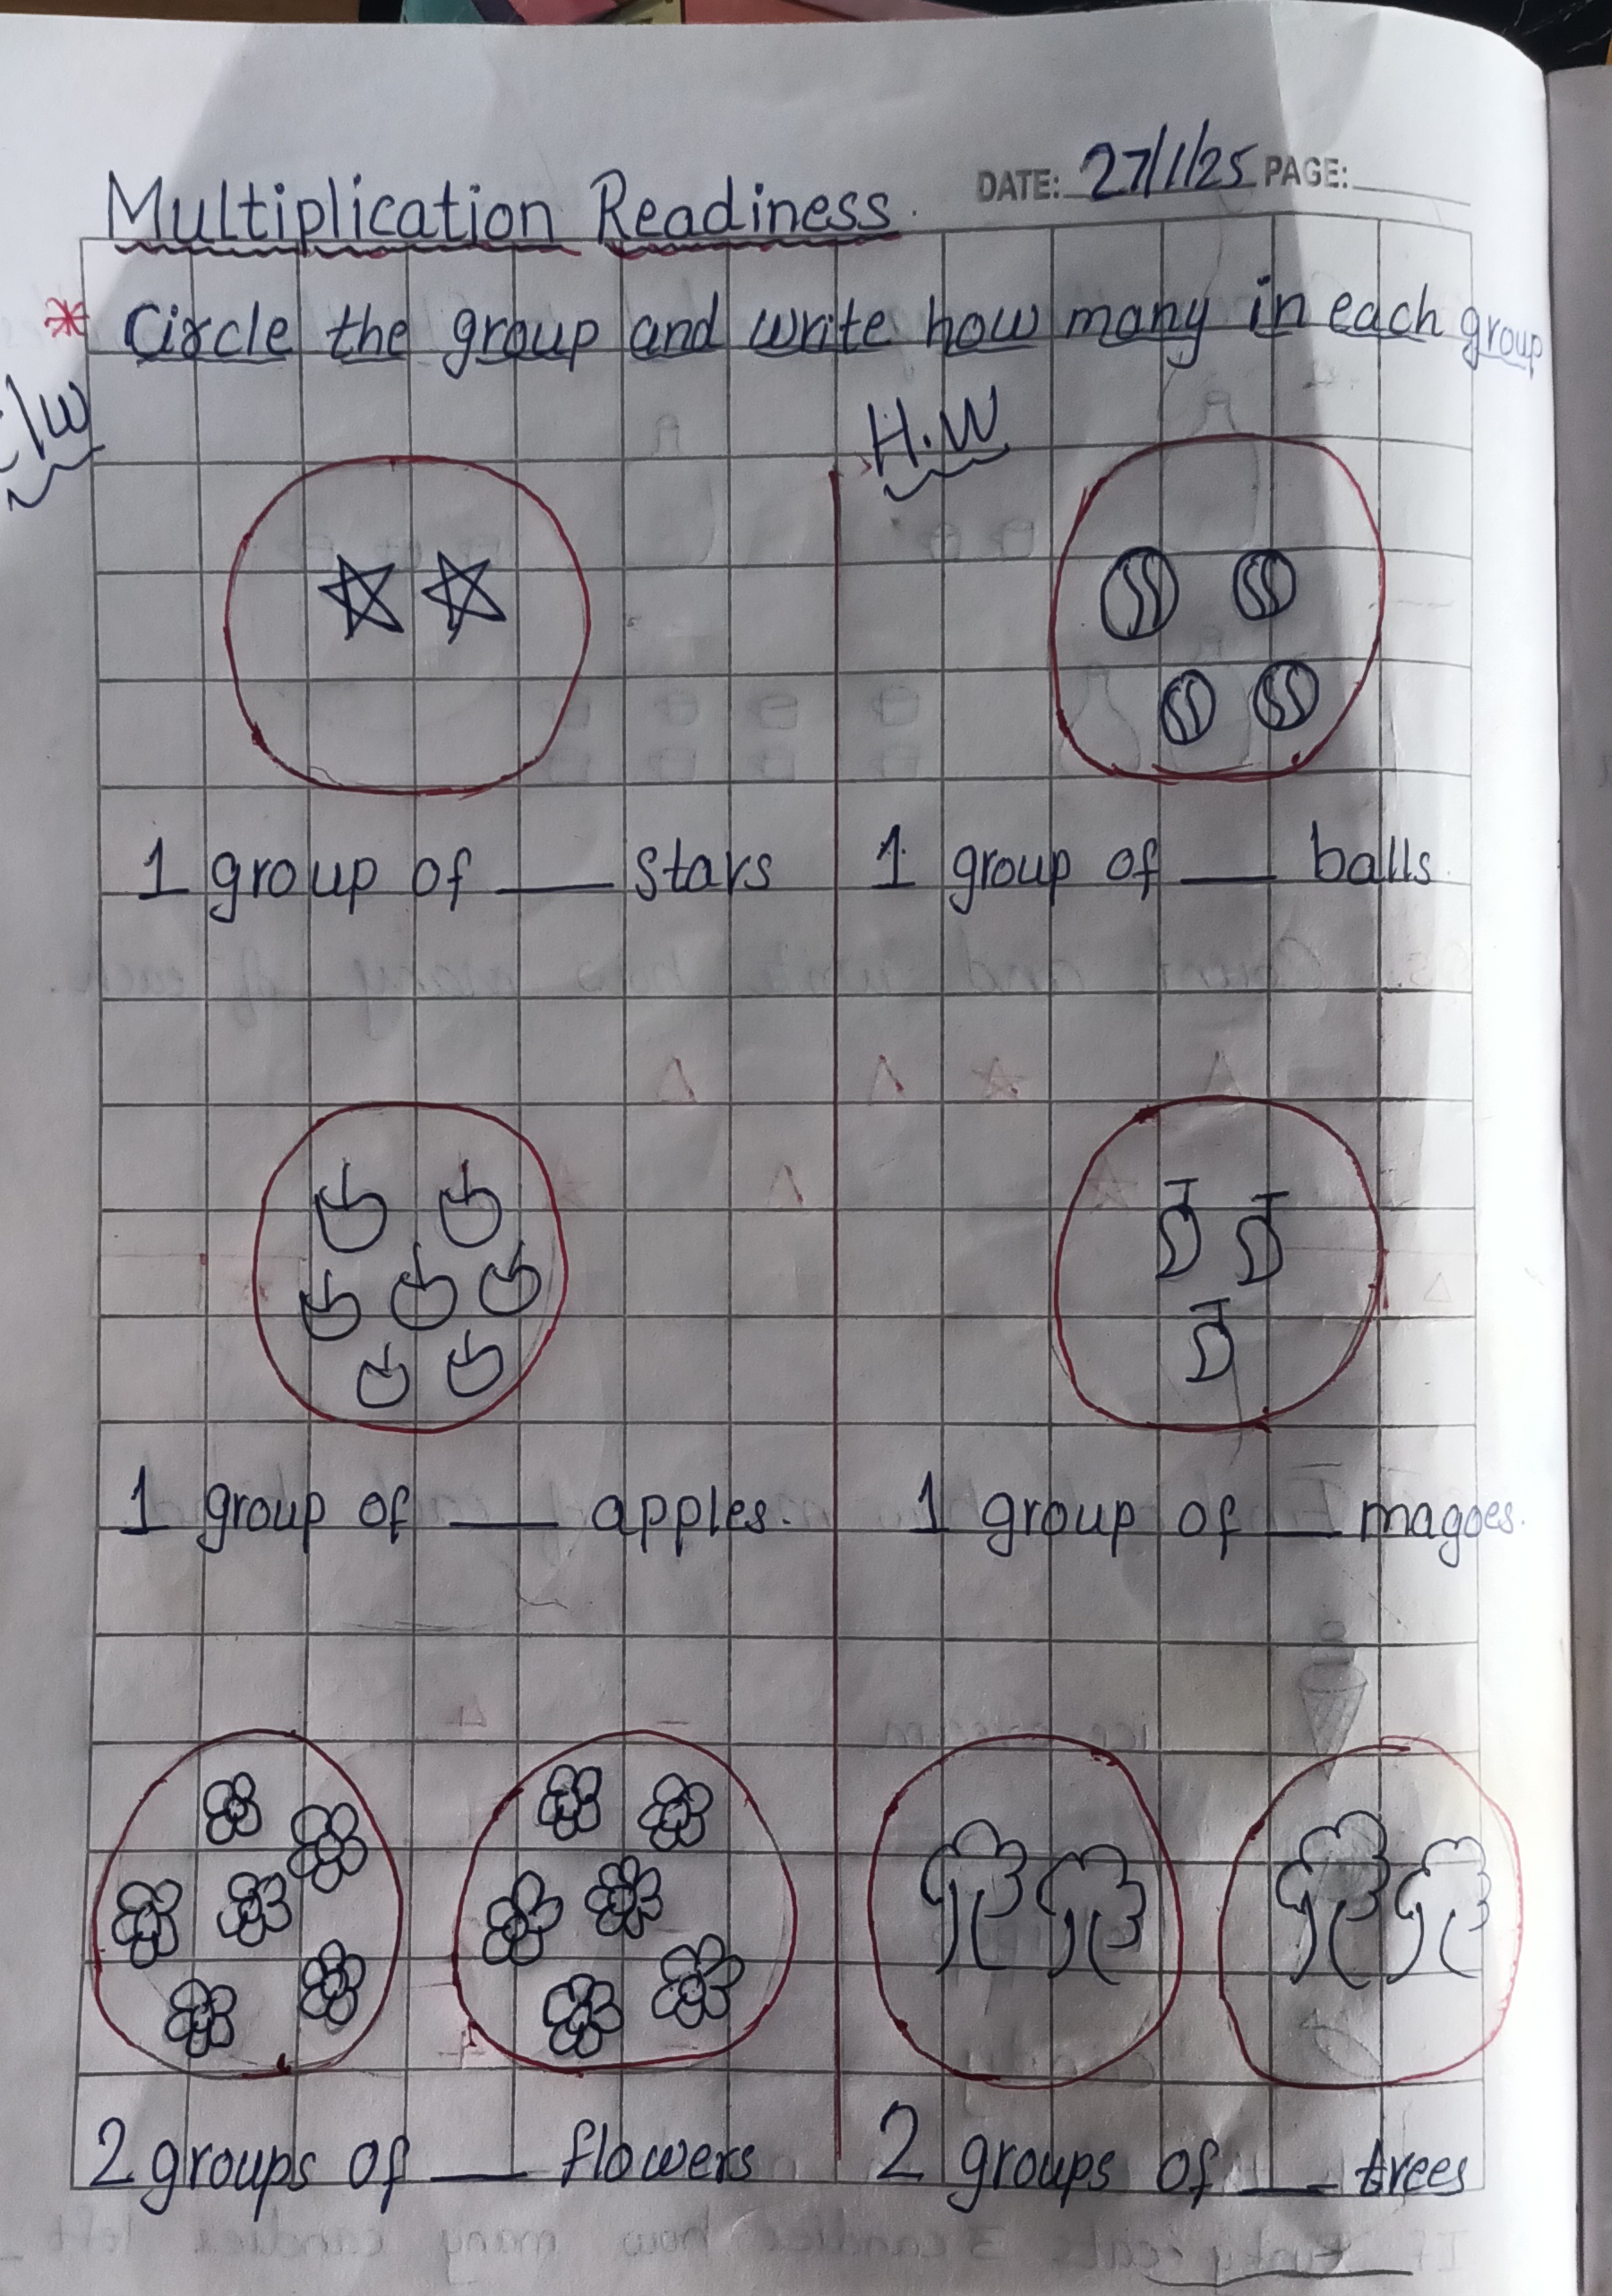 DATE: 27/1/25 PAGE:
Multiplication Readiness.
* Circle the group and write how many in each group
C/W
H.W
1 group of ___ stars
1 group of ___ balls.
1 group of ___ apples.
1 group of ___ magoes.
2 groups of ___ flowers
2 groups of ___ trees